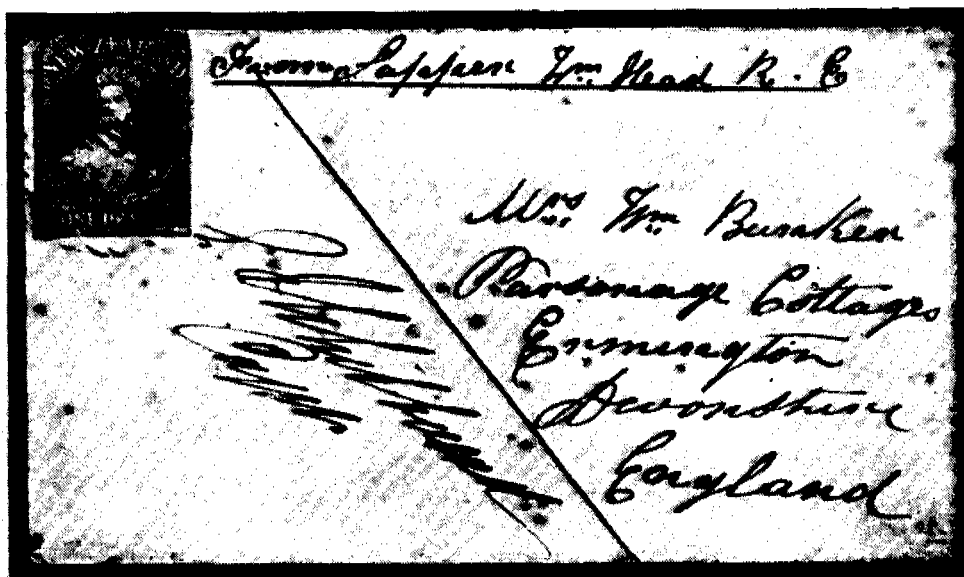 From Sapper Wm Head R. E
Mrs. Wm Bunker
Parsonage Cottages
Ermington
Devonshire
England